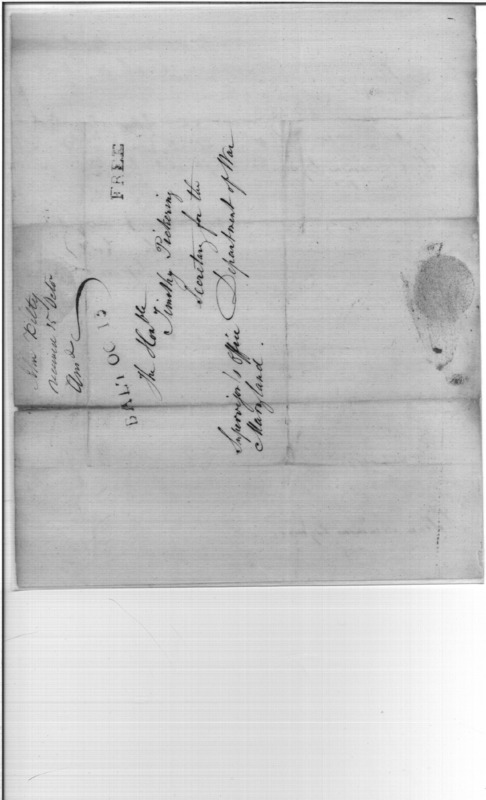 John Kilty
received 15 Octo.
Ansd
BALT OC 12
FREE
The Honble
Timothy Pickering
Secretary for the
Department of War
Supervisor's Office
Maryland.